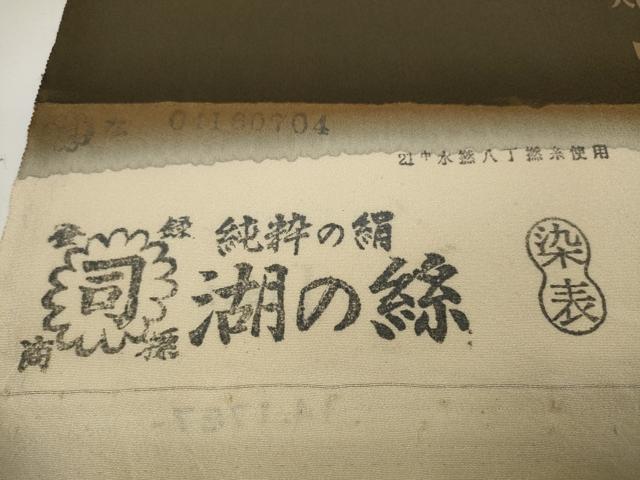 04160704
21中水撚八丁撚糸使用
登録
純粋の絹
司
湖の絲
商標
染表